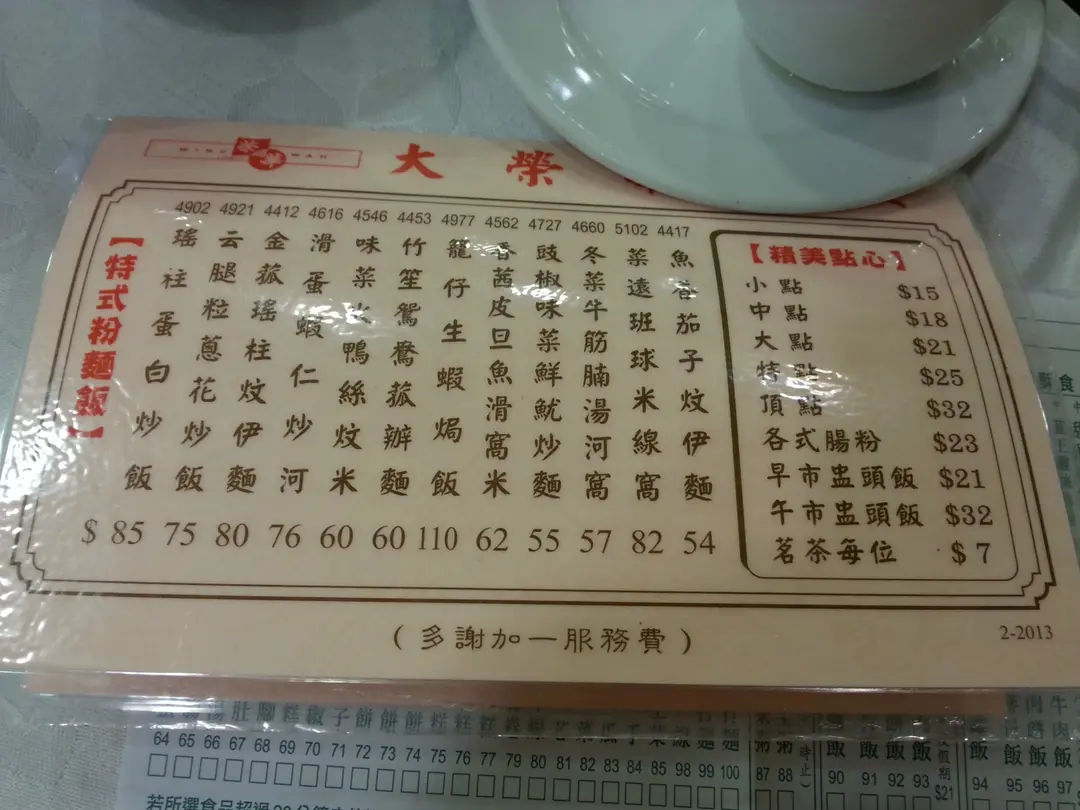 大榮
【特式粉麵飯】
4902 4921 4412 4616 4546 4453 4977 4562 4727 4660 5102 4417
瑤柱蛋白炒飯
云腿粒蔥花炒飯
金菰瑤柱炆伊麵
滑蛋蝦仁炒河
味菜火鴨絲炆米
竹笙鴛鴦菰辦麵
籠仔生蝦焗飯
香茜皮旦魚滑窩米
豉椒味菜鮮魷炒麵
冬菜牛筋腩湯河窩
菜遠班球米線窩
魚香茄子炆伊麵
$ 85 75 80 76 60 60 110 62 55 57 82 54
【精美點心】
小點 $15
中點 $18
大點 $21
特點 $25
頂點 $32
各式腸粉 $23
早市盅頭飯 $21
午市盅頭飯 $32
茗茶每位 $ 7
(多謝加一服務費)
2-2013
64 65 66 67 68 69 70 71 72 73 74 75 76 77 78 79 80 81 82 83 84 85 98 99 100
87 88
90 91 92 93
94 95 96 97
$21
若所選食品超過